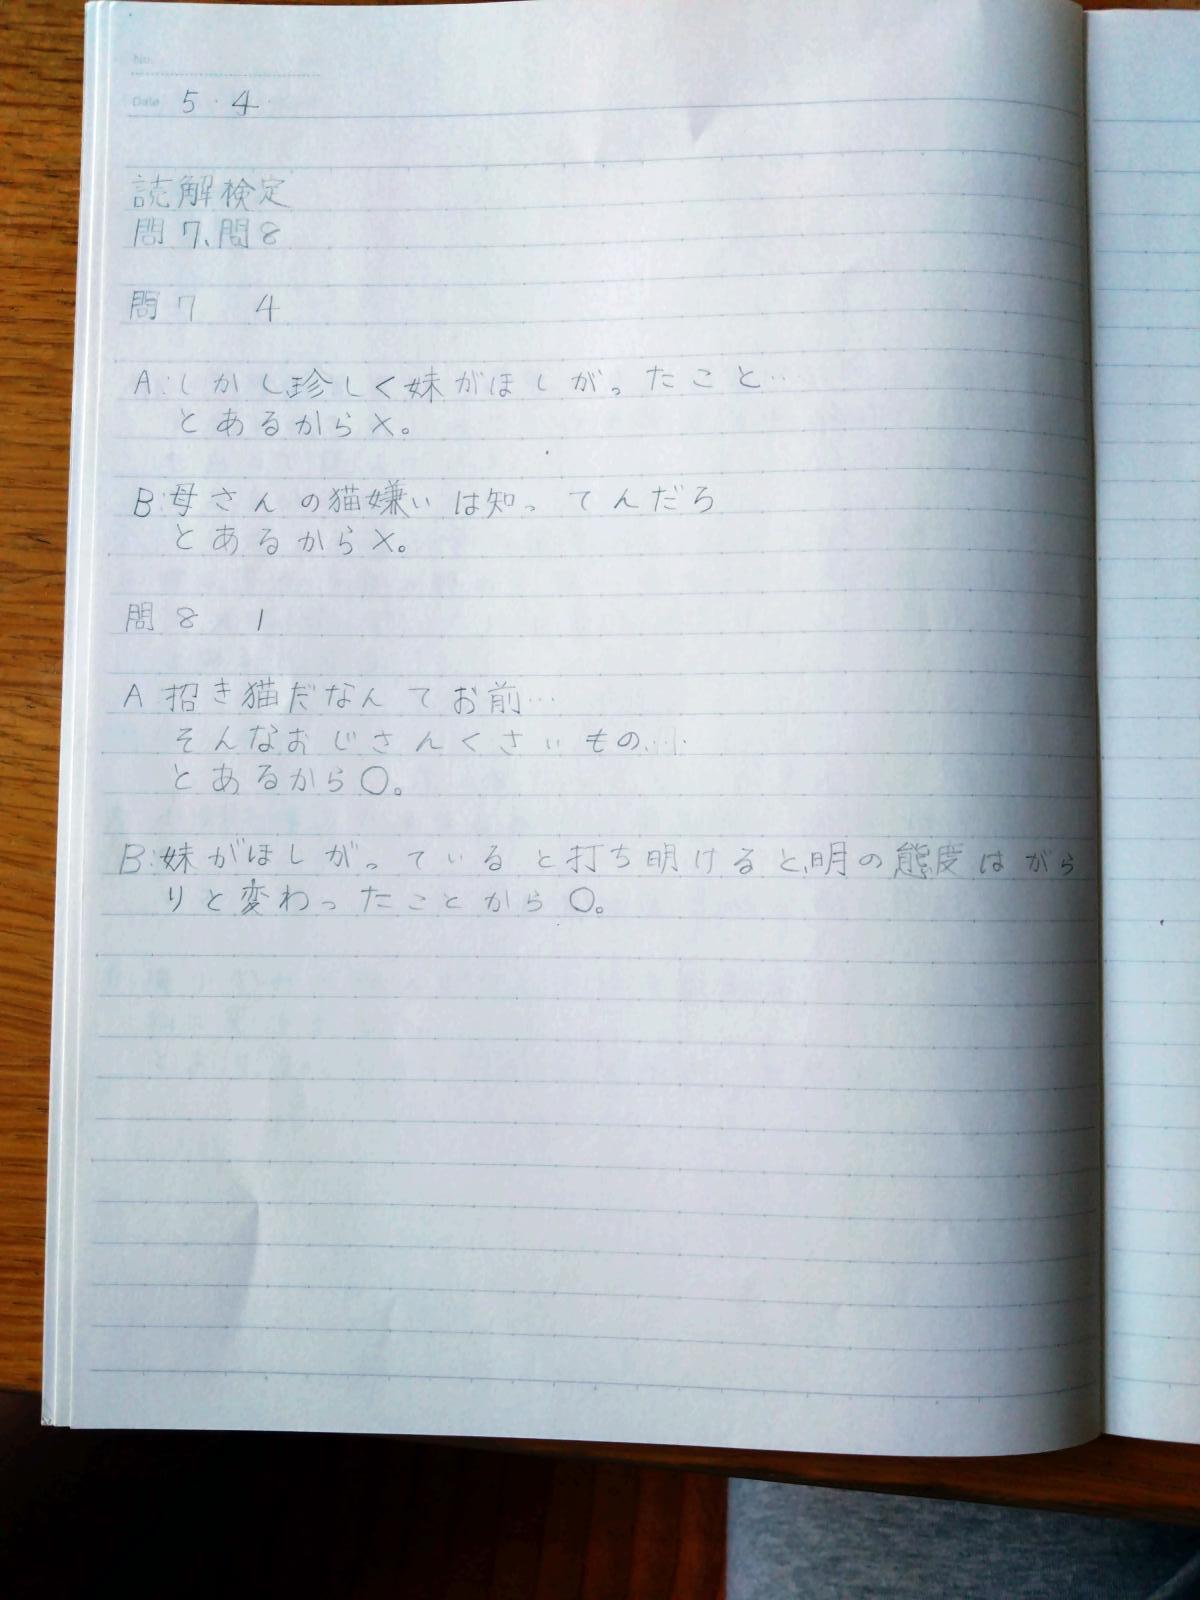 No.
Date 5・4
読解検定
問7、問8
問7 4
A:しかし珍しく妹がほしがったこと…
とあるから×。
B:母さんの猫嫌いは知ってんだろ
とあるから×。
問8 1
A 招き猫だなんてお前…
そんなおじさんくさいもの…
とあるから○。
B:妹がほしがっていると打ち明けると、明の態度はがら
りと変わったことから○。